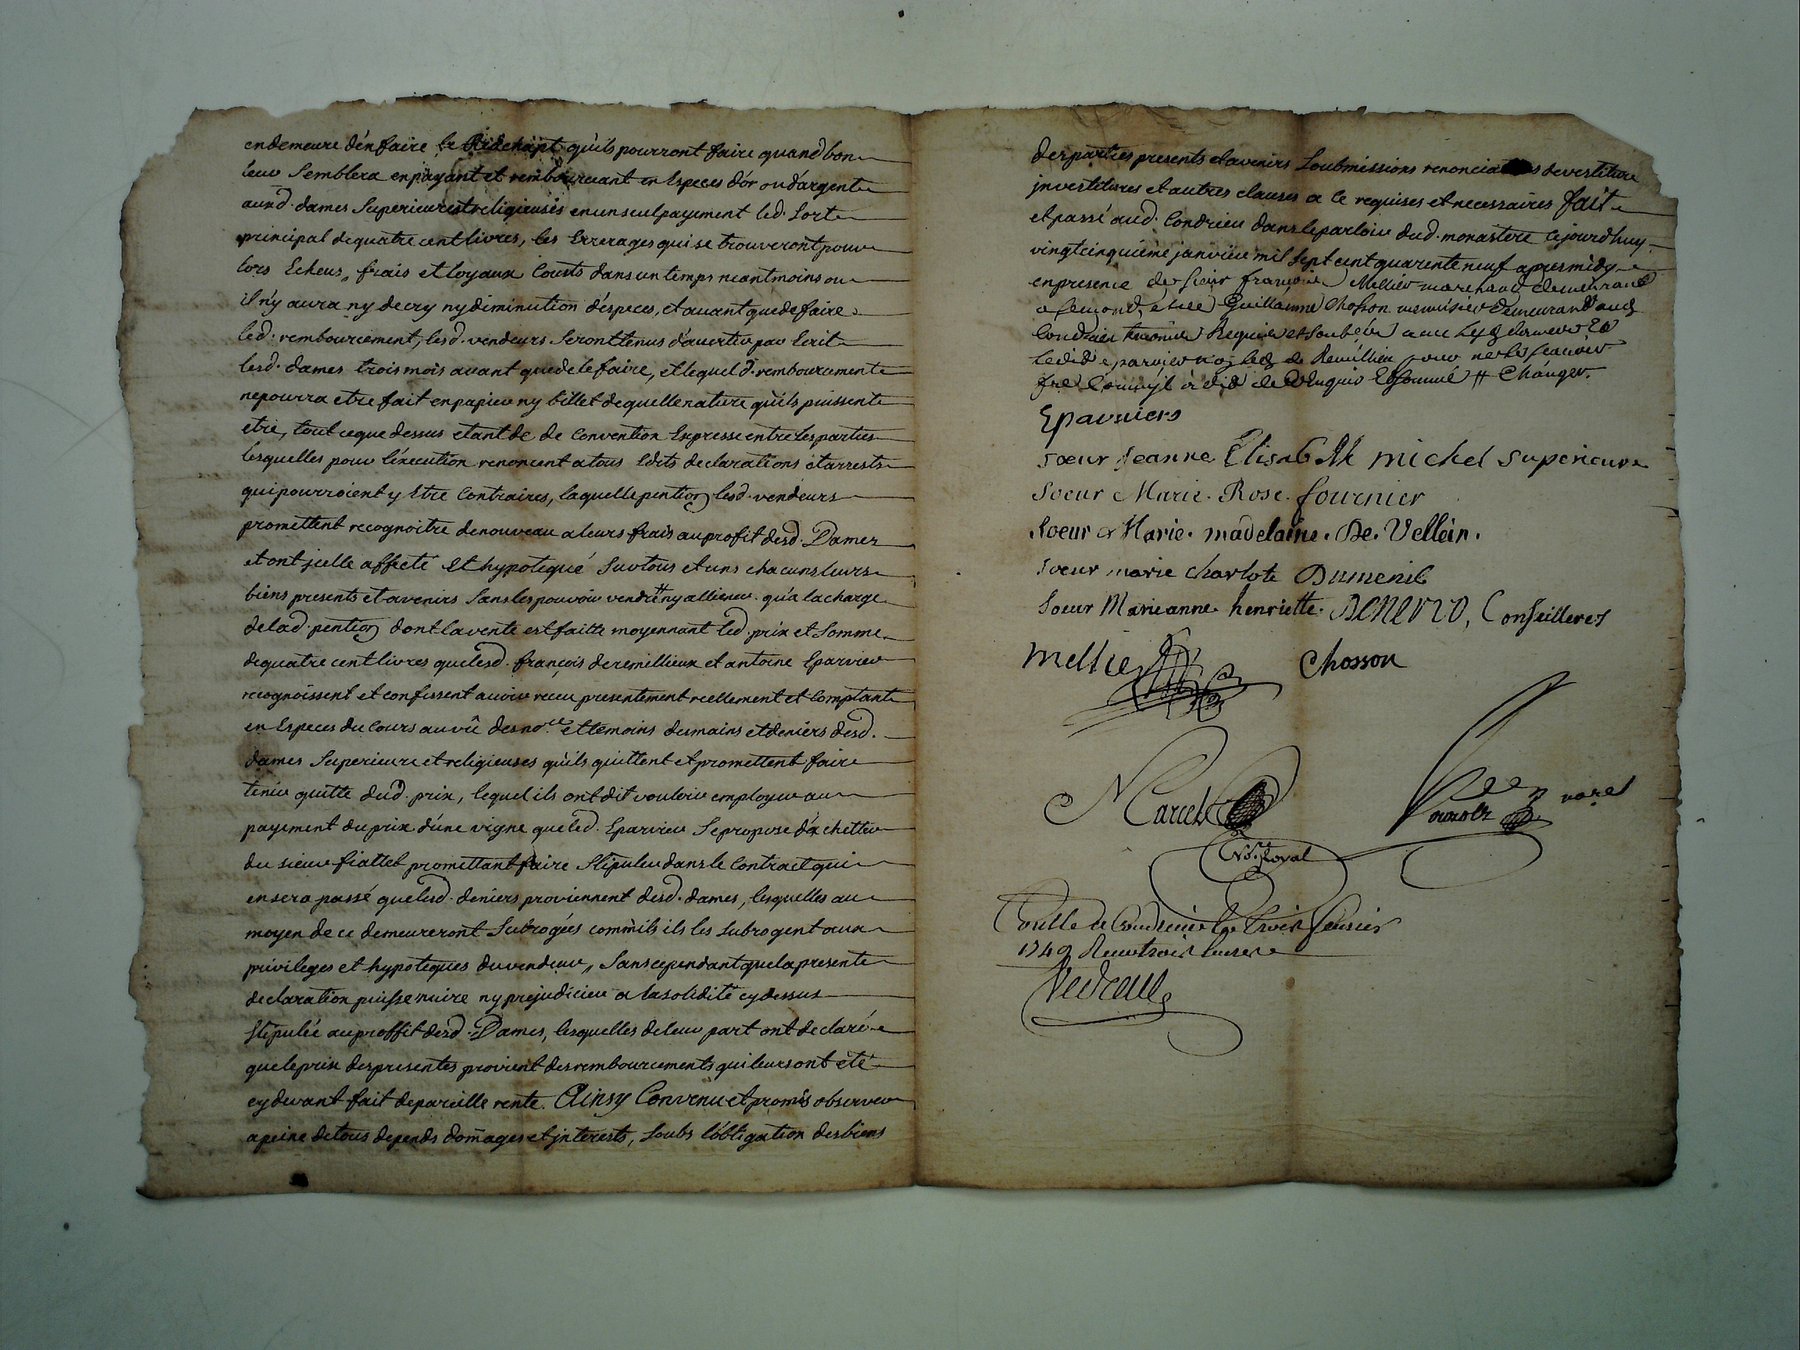 en demeure d'en faire le Rachapt qu'ils pourront faire quand bon
leur Semblera en payant et rembourceant en Especes d'or ou d'argent
ausd. dames Superieure et religieuses en un seul payement led. Sort
principal de quatre cent livres, les Errerages qui se trouveront pour
lors Echeus, frais et loyaux Cousts dans un temps neantmoins ou
il n'y aura ny decry ny diminution d'especes, et avant que de faire
led. rembourcement, lesd. vendeurs Seront tenus d'avertir par Ecrit
lesd. dames trois mois avant que de le faire, et lequel d. rembourcement
ne pourra etre fait en papier ny billet de quelle nature qu'ils puissent
etre, tout ce que dessus etant de de Convention Expresse entre les parties
lesquelles pour l'execution renoncent a tous Edits declarations et arrests
qui pourroient y Etre Contraires, laquelle pention lesd. vendeurs
promettent recognoitre de nouveau a leurs frais au profit desd. Dames
et ont jcelle affecté et hypotequé Sur tous et uns chacuns leurs
biens presents et avenirs Sans les pouvoir vendre ny alliener qu'a la charge
de lad. pention dont la vente est faitte moyennant led. prix et Somme
de quatre cent livres que lesd. françois de remillieux et antoine Eparvier
recognoissent et confessent avoir receu presentement reellement et Comptant
en Especes du Cours au vû des no.res et temoins des mains et deniers desd.
dames Superieure et religieuses qu'ils quittent et promettent faire
tenir quitte dud. prix, lequel ils ont dit vouloir employer au
payement du prix d'une vigne que led. Eparvier Se propose d'achetter
du sieur fiattet promettant faire Stipuler dans le Contract qui
en sera passé que lesd. deniers proviennent desd. dames, lesquelles au
moyen de ce demeureront Subrogées comm'ils ils les subrogent aux
privileges et hypoteques du vendeur, Sans cependant que la presente
declaration puisse nuire ny prejudicier a la solidité cy dessus
Stipulée au proffit desd. Dames, lesquelles de leur part ont declaré
que le prix des presentes provient des rembourcements qui leurs ont eté
cy devant fait de pareille rente. Ainsy Convenu et promis observer
a peine de tous depends domages et jnterests, soubs l'obligation des biens
des parties presents et avenirs Soubmissions renonciations devestiture
jnvestitures et autres clauses a ce requises et necessaires fait
et passé aud. Condrieu dans le parloir dud. monastere ce jourdhuy
vingt cinquieme janvier mil Sept cent quarente neuf apres midy
en presence de sieur françois Mellier marchand demeurant
a et sieur Guillaume Chosson menuisier demeurant aud.
Condrieu temoins Requis et Soub.es avec
led. Eparvier non led. de Remillieu pour ne le sçavoir
Enquis et sommé # Changer.
Eparvier
Soeur Jeanne Elisabeth michel superieure
Soeur Marie. Rose. fournier
Soeur Marie. madelaine. De. Vellein.
Soeur marie charlote Dumenil
Soeur Marieanne henriette. DENERVO, Conseilleres
Mellier
Chosson
Marcel
No.re Royal
nores
Conllé a Condrieu le trois fevrier
1749 Receu trois livres